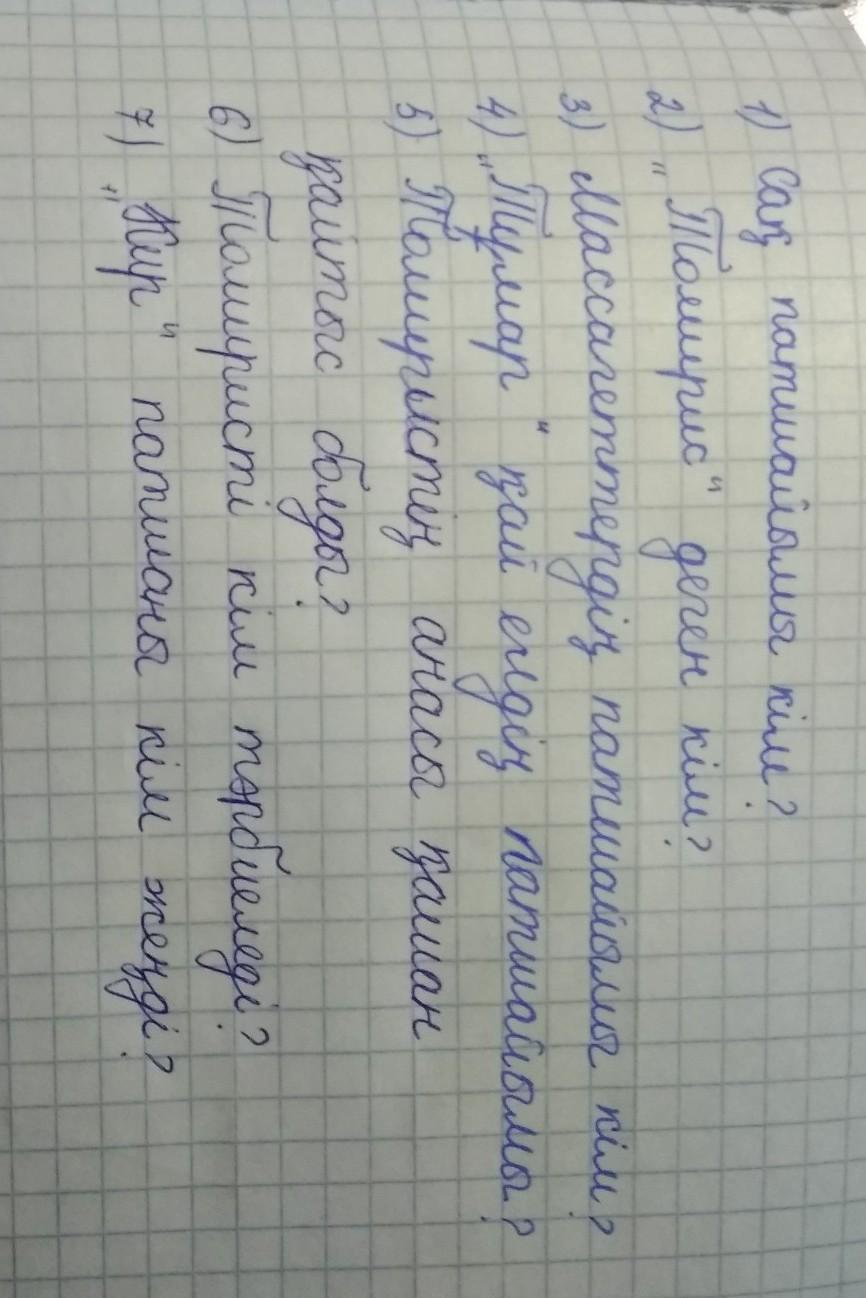 1) Сақ патшайымы кім?
2) „Томирис" деген кім?
3) Массагеттердің патшайымы кім?
4) „Тұмар" қай елдің патшайымы?
5) Томирыстің анасы қашан
қайтыс болды?
6) Томиристі кім тәрбиеледі?
7) „Кир" патшаны кім жеңді?